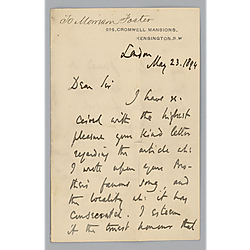 To Morrison Foster
CROMWELL MANSIONS,
KENSINGTON, S.W
London
May 23. 1894
Dear Sir
I have re-
ceived with the highest
pleasure your kind letter
regarding the article wh:
I wrote upon your Bro-
ther's famous song, and
the locality wh: it has
consecrated. I esteem
it the truest honour that